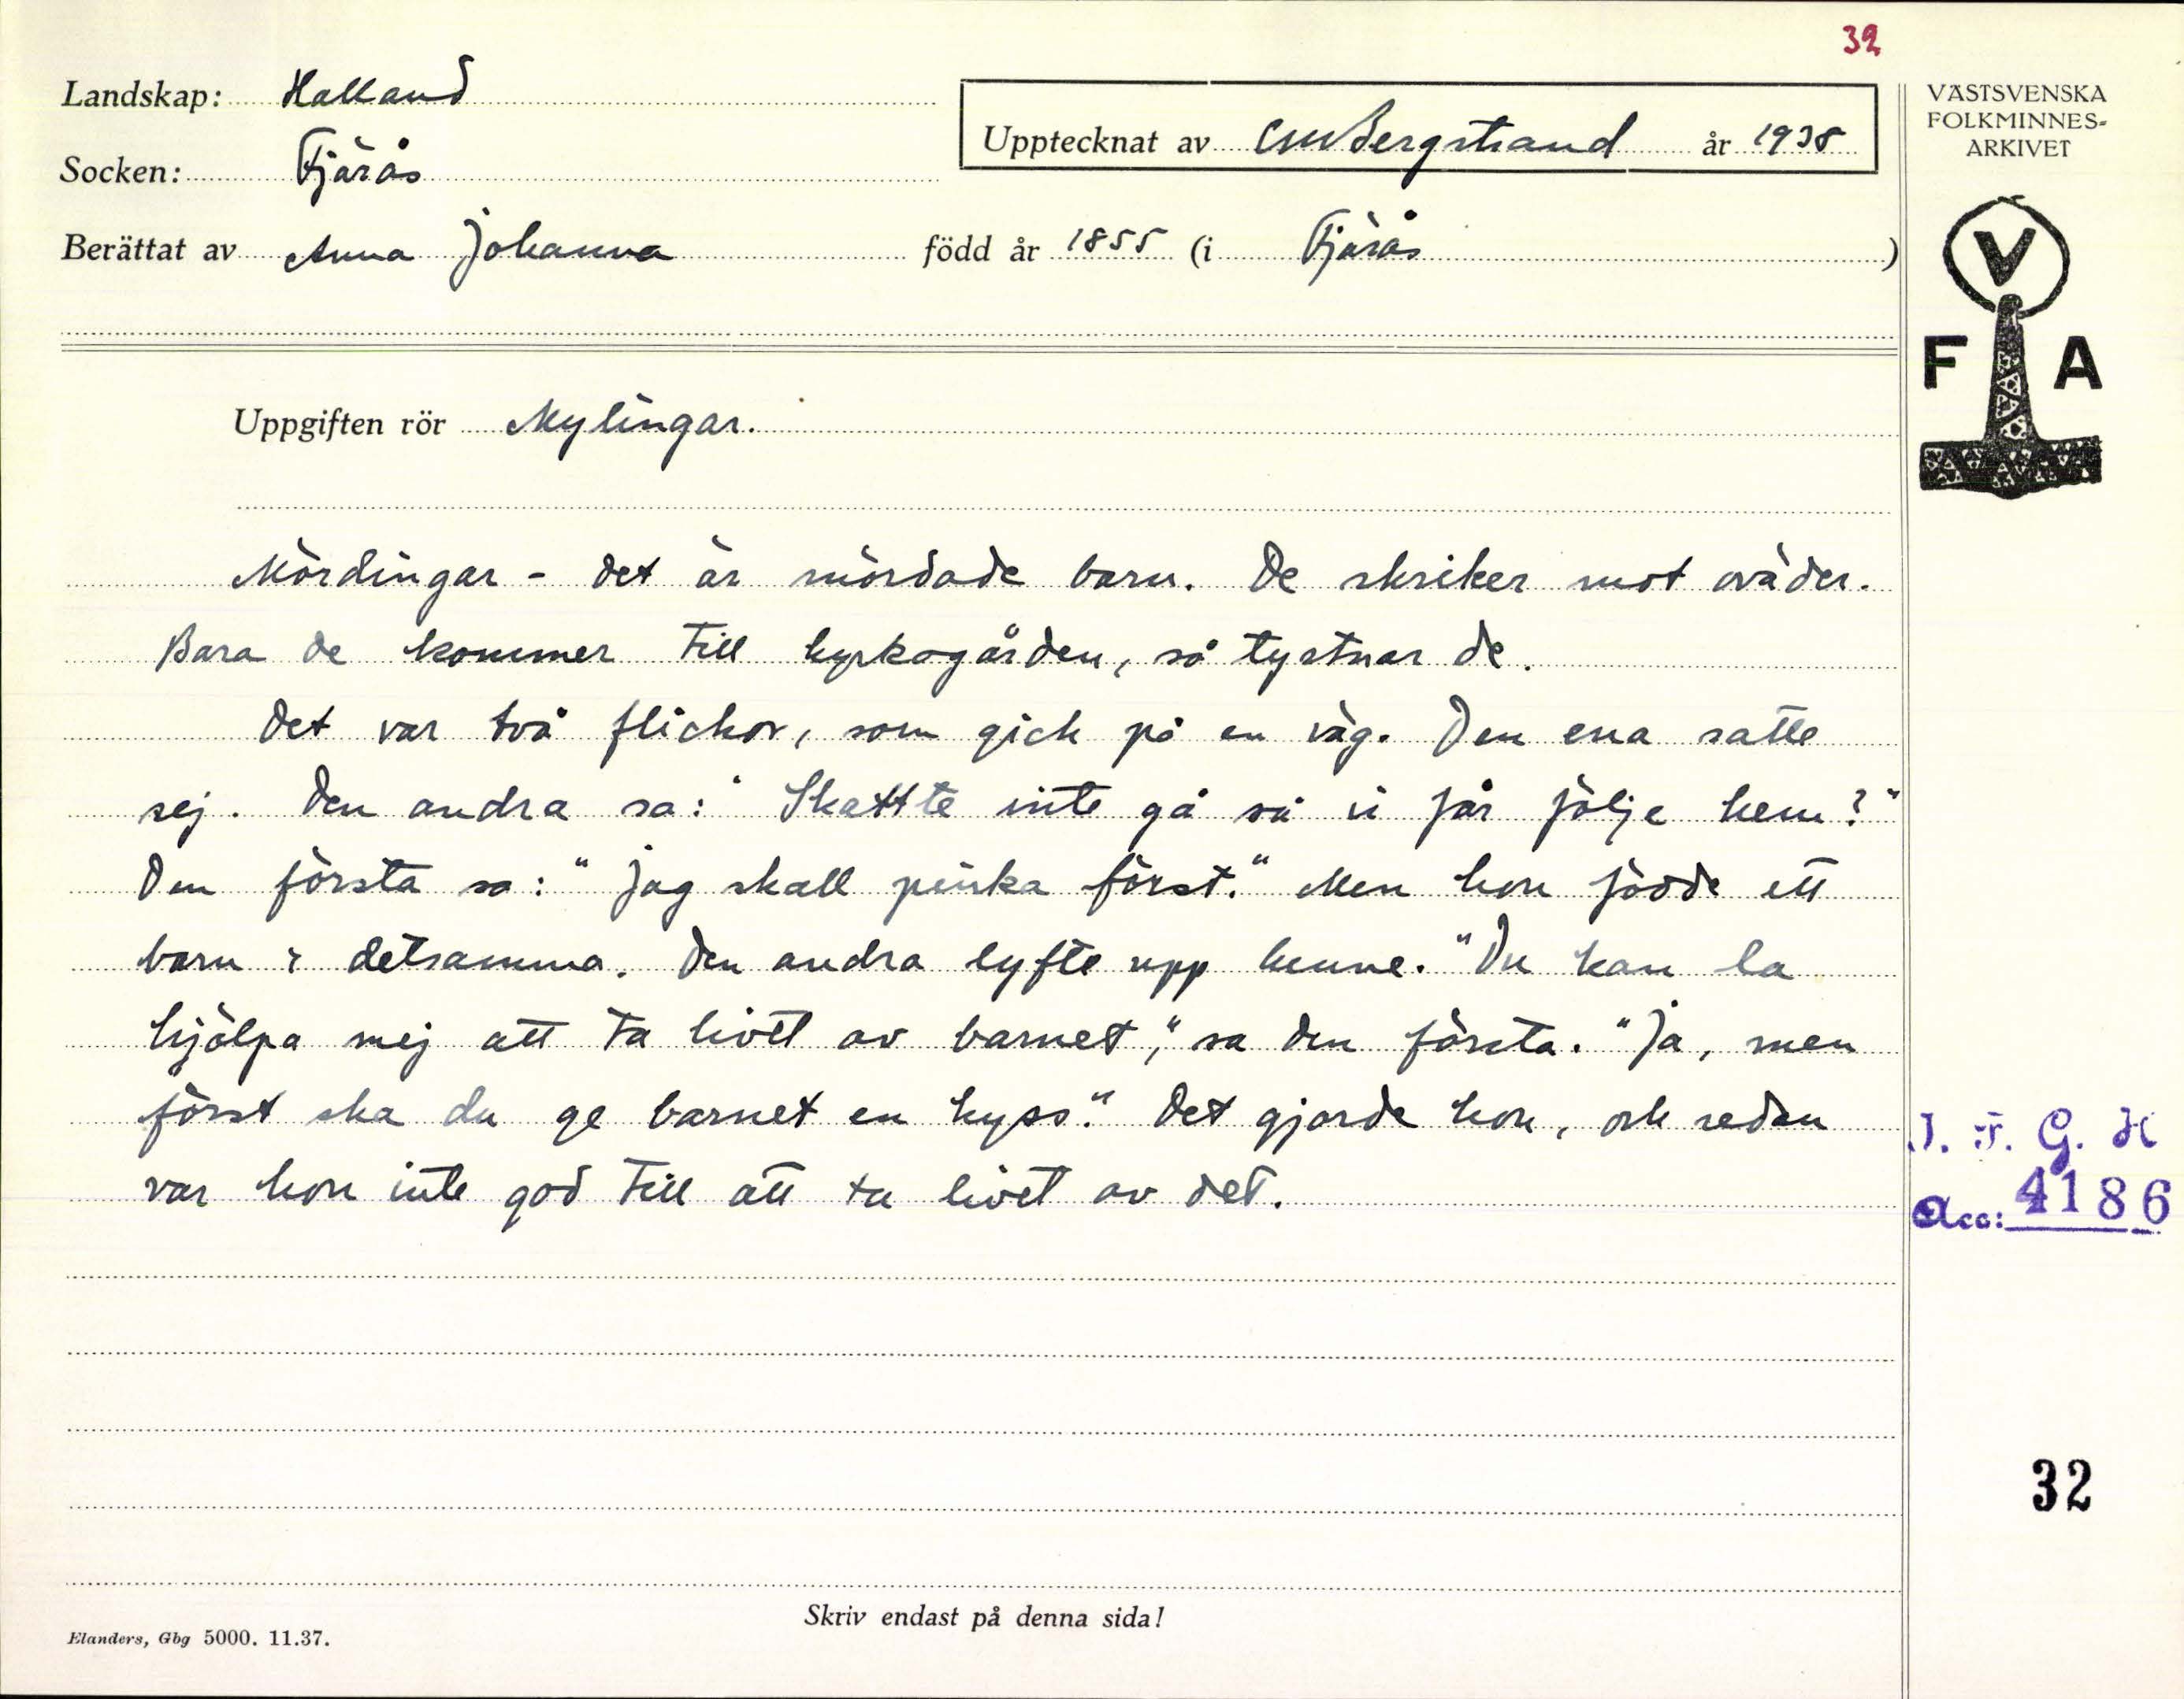 32
Landskap: Halland
Socken: Fjärås
Upptecknat av CMBergstrand år 1938
Berättat av Anna Johanna född år 1855 (i Fjärås)
VÄSTSVENSKA
FOLKMINNES-
ARKIVET
V
F A
Uppgiften rör Mylingar.
Mördingar - det är mördade barn. De skriker mot oväder.
Bara de kommer till kyrkogården, så tystnar de.
Det var två flickor, som gick på en väg. Den ena satte
sej. Den andra sa: "Skatt te inte gå så vi får följe hem?"
Den första sa: "Jag skall pinka först." Men hon födde ett
barn i detsamma. Den andra lyfte upp henne. "Du kan la
hjälpa mej att ta livet av barnet," sa den första. "Ja, men
först ska du ge barnet en kyss." Det gjorde hon, och sedan
var hon inte god till att ta livet av det.
I. F. G. H
Acc: 4186
32
Skriv endast på denna sida!
Elanders, Gbg 5000. 11.37.